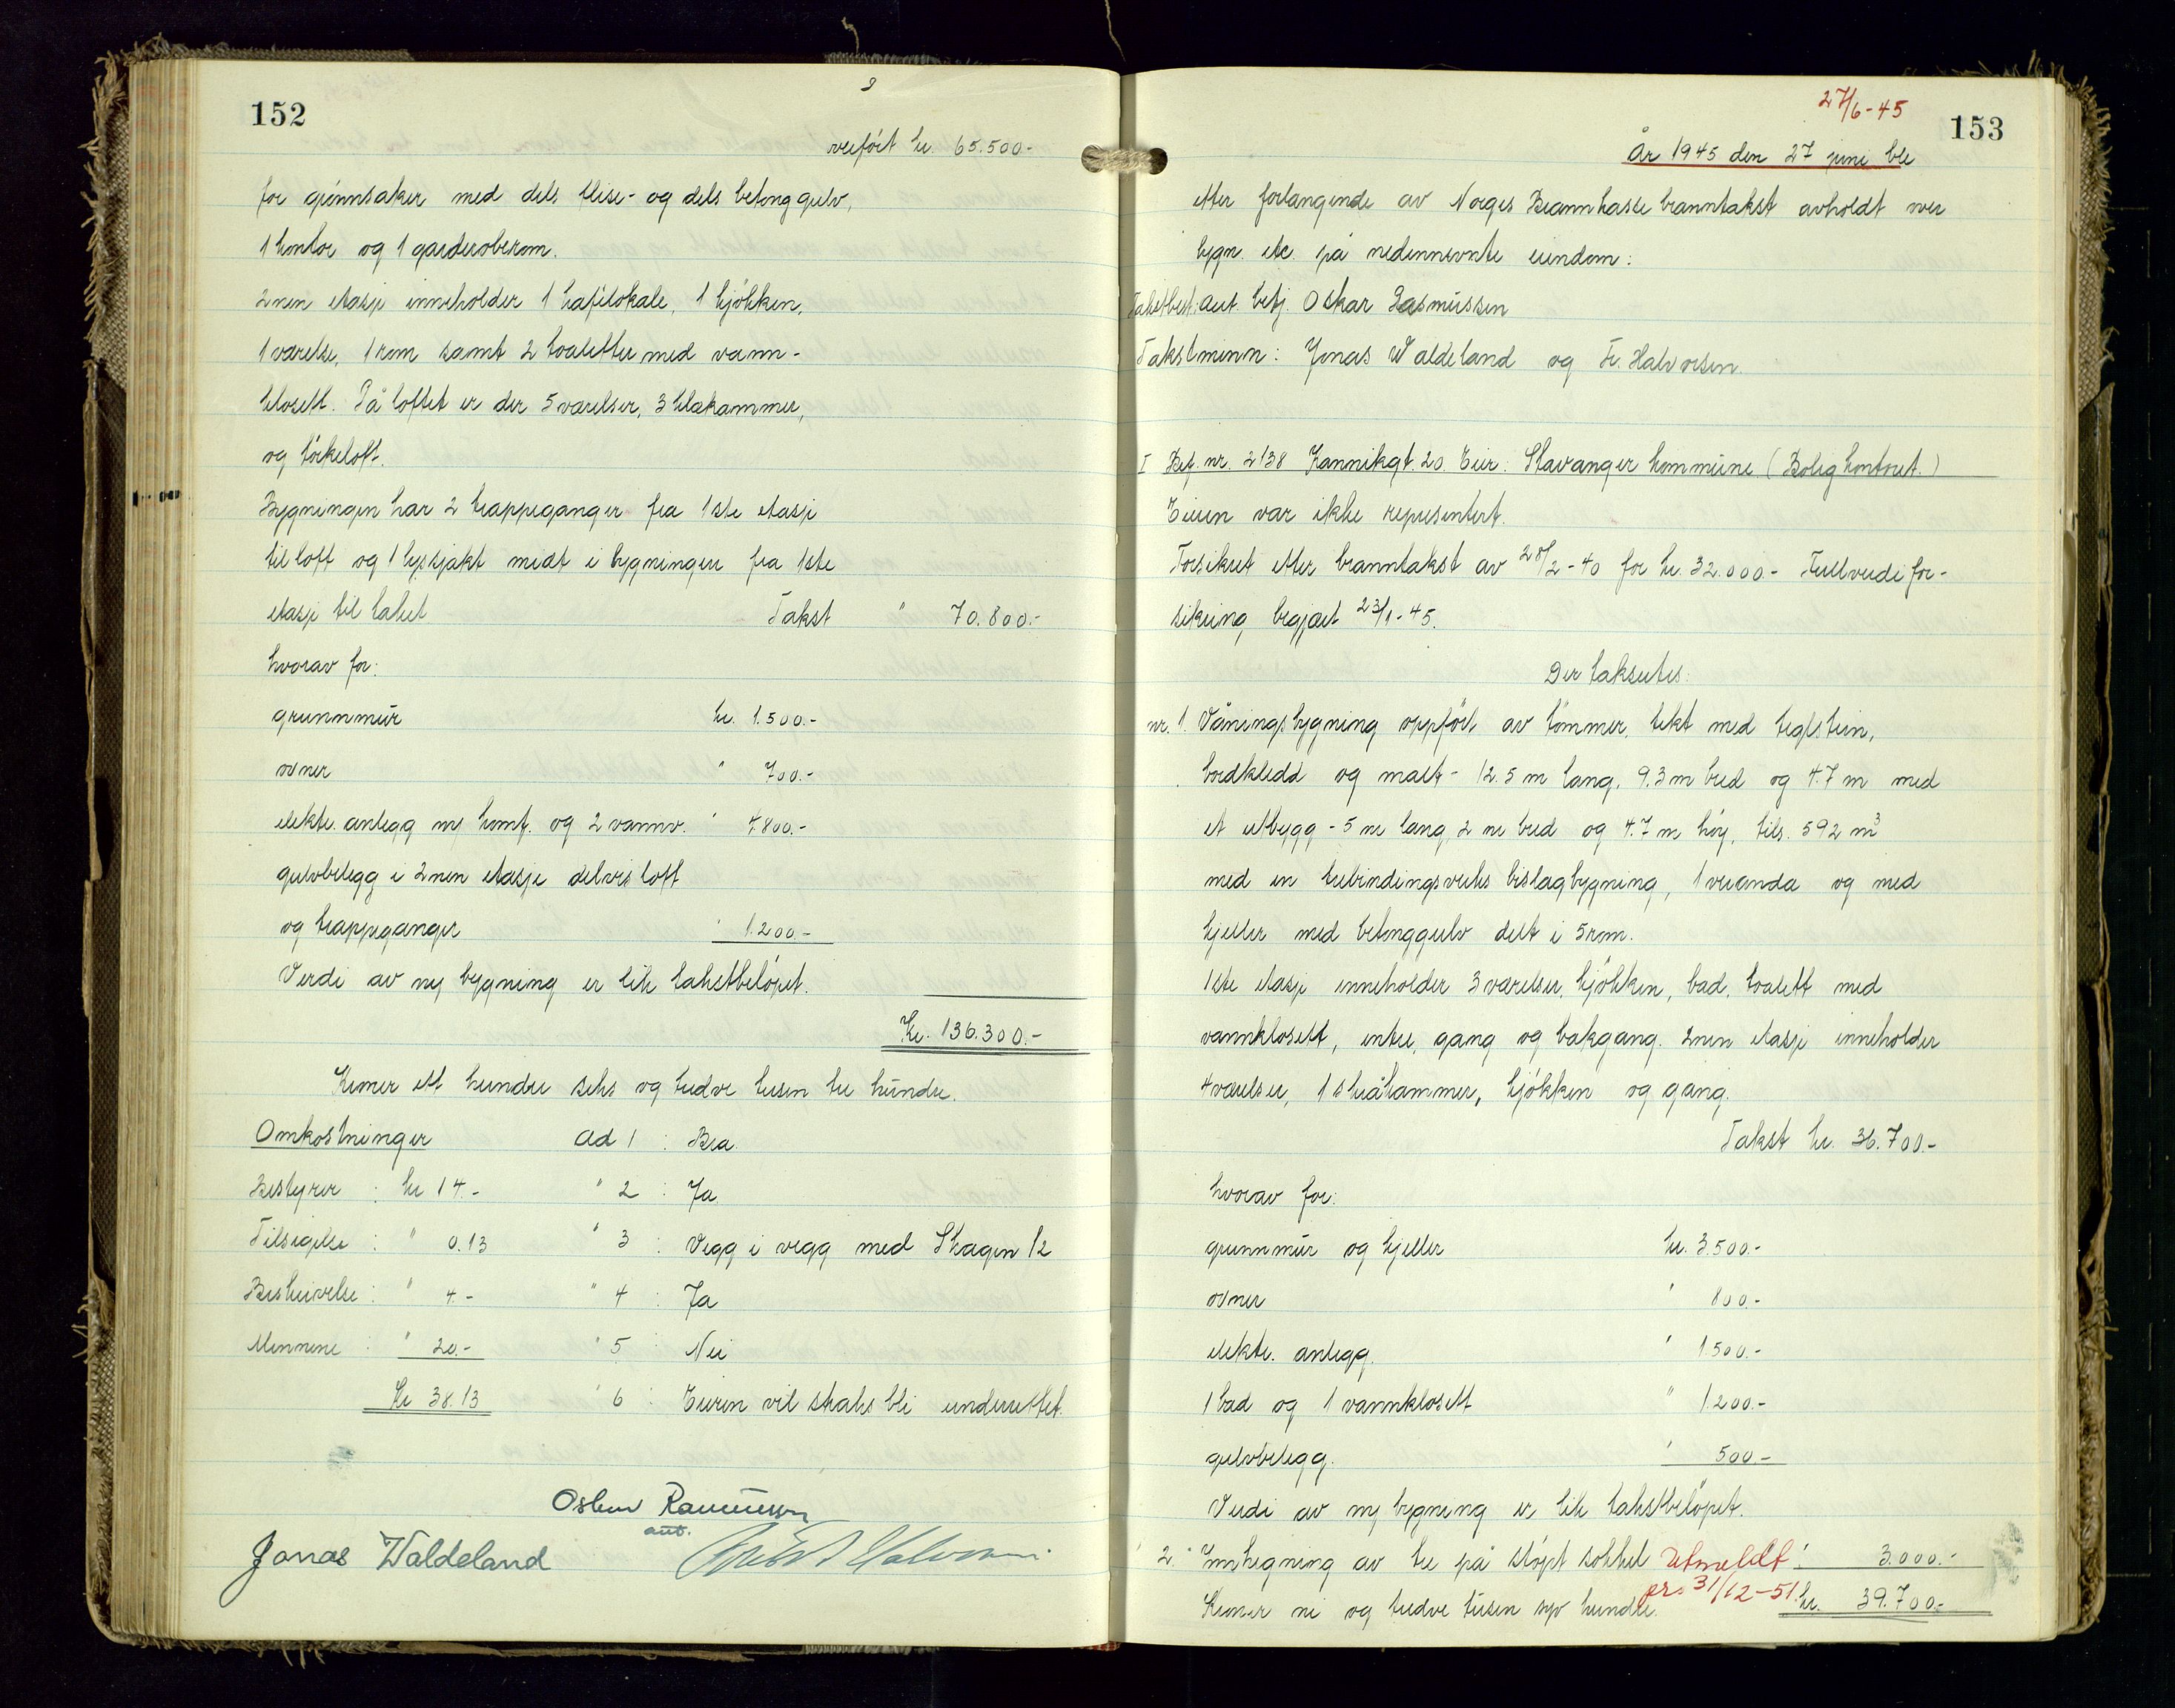 152
overført kr. 65.500.-
for grønnsaker med dels flise- og dels betonggulv,
1 kontor og 1 garderoberom.
2nen etasje inneholder 1 kafélokale, 1 kjøkken,
1 værelse, 1 rom samt 2 toaletter med vann-
klosett. På loftet er der 5 værelser, 3 klekammer,
og tørkeloft.
Bygningen har 2 trappeganger fra 1ste etasje
til loft og 1 lyssjakt midt i bygningen fra 1ste
etasje til taket Takst " 70.800.-
hvorav for:
grunnmur kr. 1.500.-
ovner " 700.-
elektr. anlegg m/ komf. og 2 vannv. " 4.800.-
gulvbelegg i 2nen etasje delvis loft
og trappeganger " 1.200.-
Verdi av ny bygning er lik takstbeløpet.
Kr. 136.300.-
Kroner ett hundre seks og tredve tusen tre hundre.
Omkostninger ad 1 : Bra
Bestyrer : kr 14.- " 2 : Ja
Tilsigelse : " 0.13 " 3 : Vegg i vegg med Skagen 12
Beskrivelse : " 4.- " 4 : Ja
Mennene : " 20.- " 5 : Nei
Kr 38.13 " 6 : Eieren vil straks bli underrettet.
Oskar Rasmussen
aut.
Jonas Waldeland Halvorsen
27/6-45
153
År 1945 den 27 juni ble
etter forlangende av Norges Brannkasse branntakst avholdt over
bygn. etc. på nedennevnte eiendom:
Takstbest: aut. betj. Oskar Rasmussen
Takstmenn: Jonas Waldeland og Fr. Halvorsen.
I Bef. nr. 2138 Kannikgt. 20. Eier: Stavanger kommune (Boligkontoret.)
Eieren var ikke representert.
Forsikret etter branntakst av 28/2-40 for kr. 32.000.- Fullverdifor-
sikring begjært 23/1-45.
Der takseres:
nr. 1. Våningsbygning oppført av tømmer, tekt med teglstein,
bordkledd og malt - 12.5 m lang, 9.3 m bred og 4.7 m med
et utbygg - 5 m lang, 2 m bred og 4.7 m høy, tils. 592 m3
med en trebindingsverks bislagbygning, 1 veranda og med
kjeller med betonggulv delt i 5 rom.
1ste etasje inneholder 3 værelser, kjøkken, bad, toalett med
vannklosett, entre, gang og bakgang. 2nen etasje inneholder
4 værelser, 1 skråkammer, kjøkken og gang.
Takst kr. 36.700.-
hvorav for:
grunnmur og kjeller kr. 3.500.-
ovner " 800.-
elektr. anlegg. " 1.500.-
1 bad og 1 vannklosett " 1.200.-
gulvbelegg. " 500.-
Verdi av ny bygning er lik takstbeløpet.
" 2. Innhegning av tre på støpt sokkel Utmeldt " 3.000.-
pr. 31/12-51
Kroner ni og tredve tusen syv hundre. kr. 39.700.-